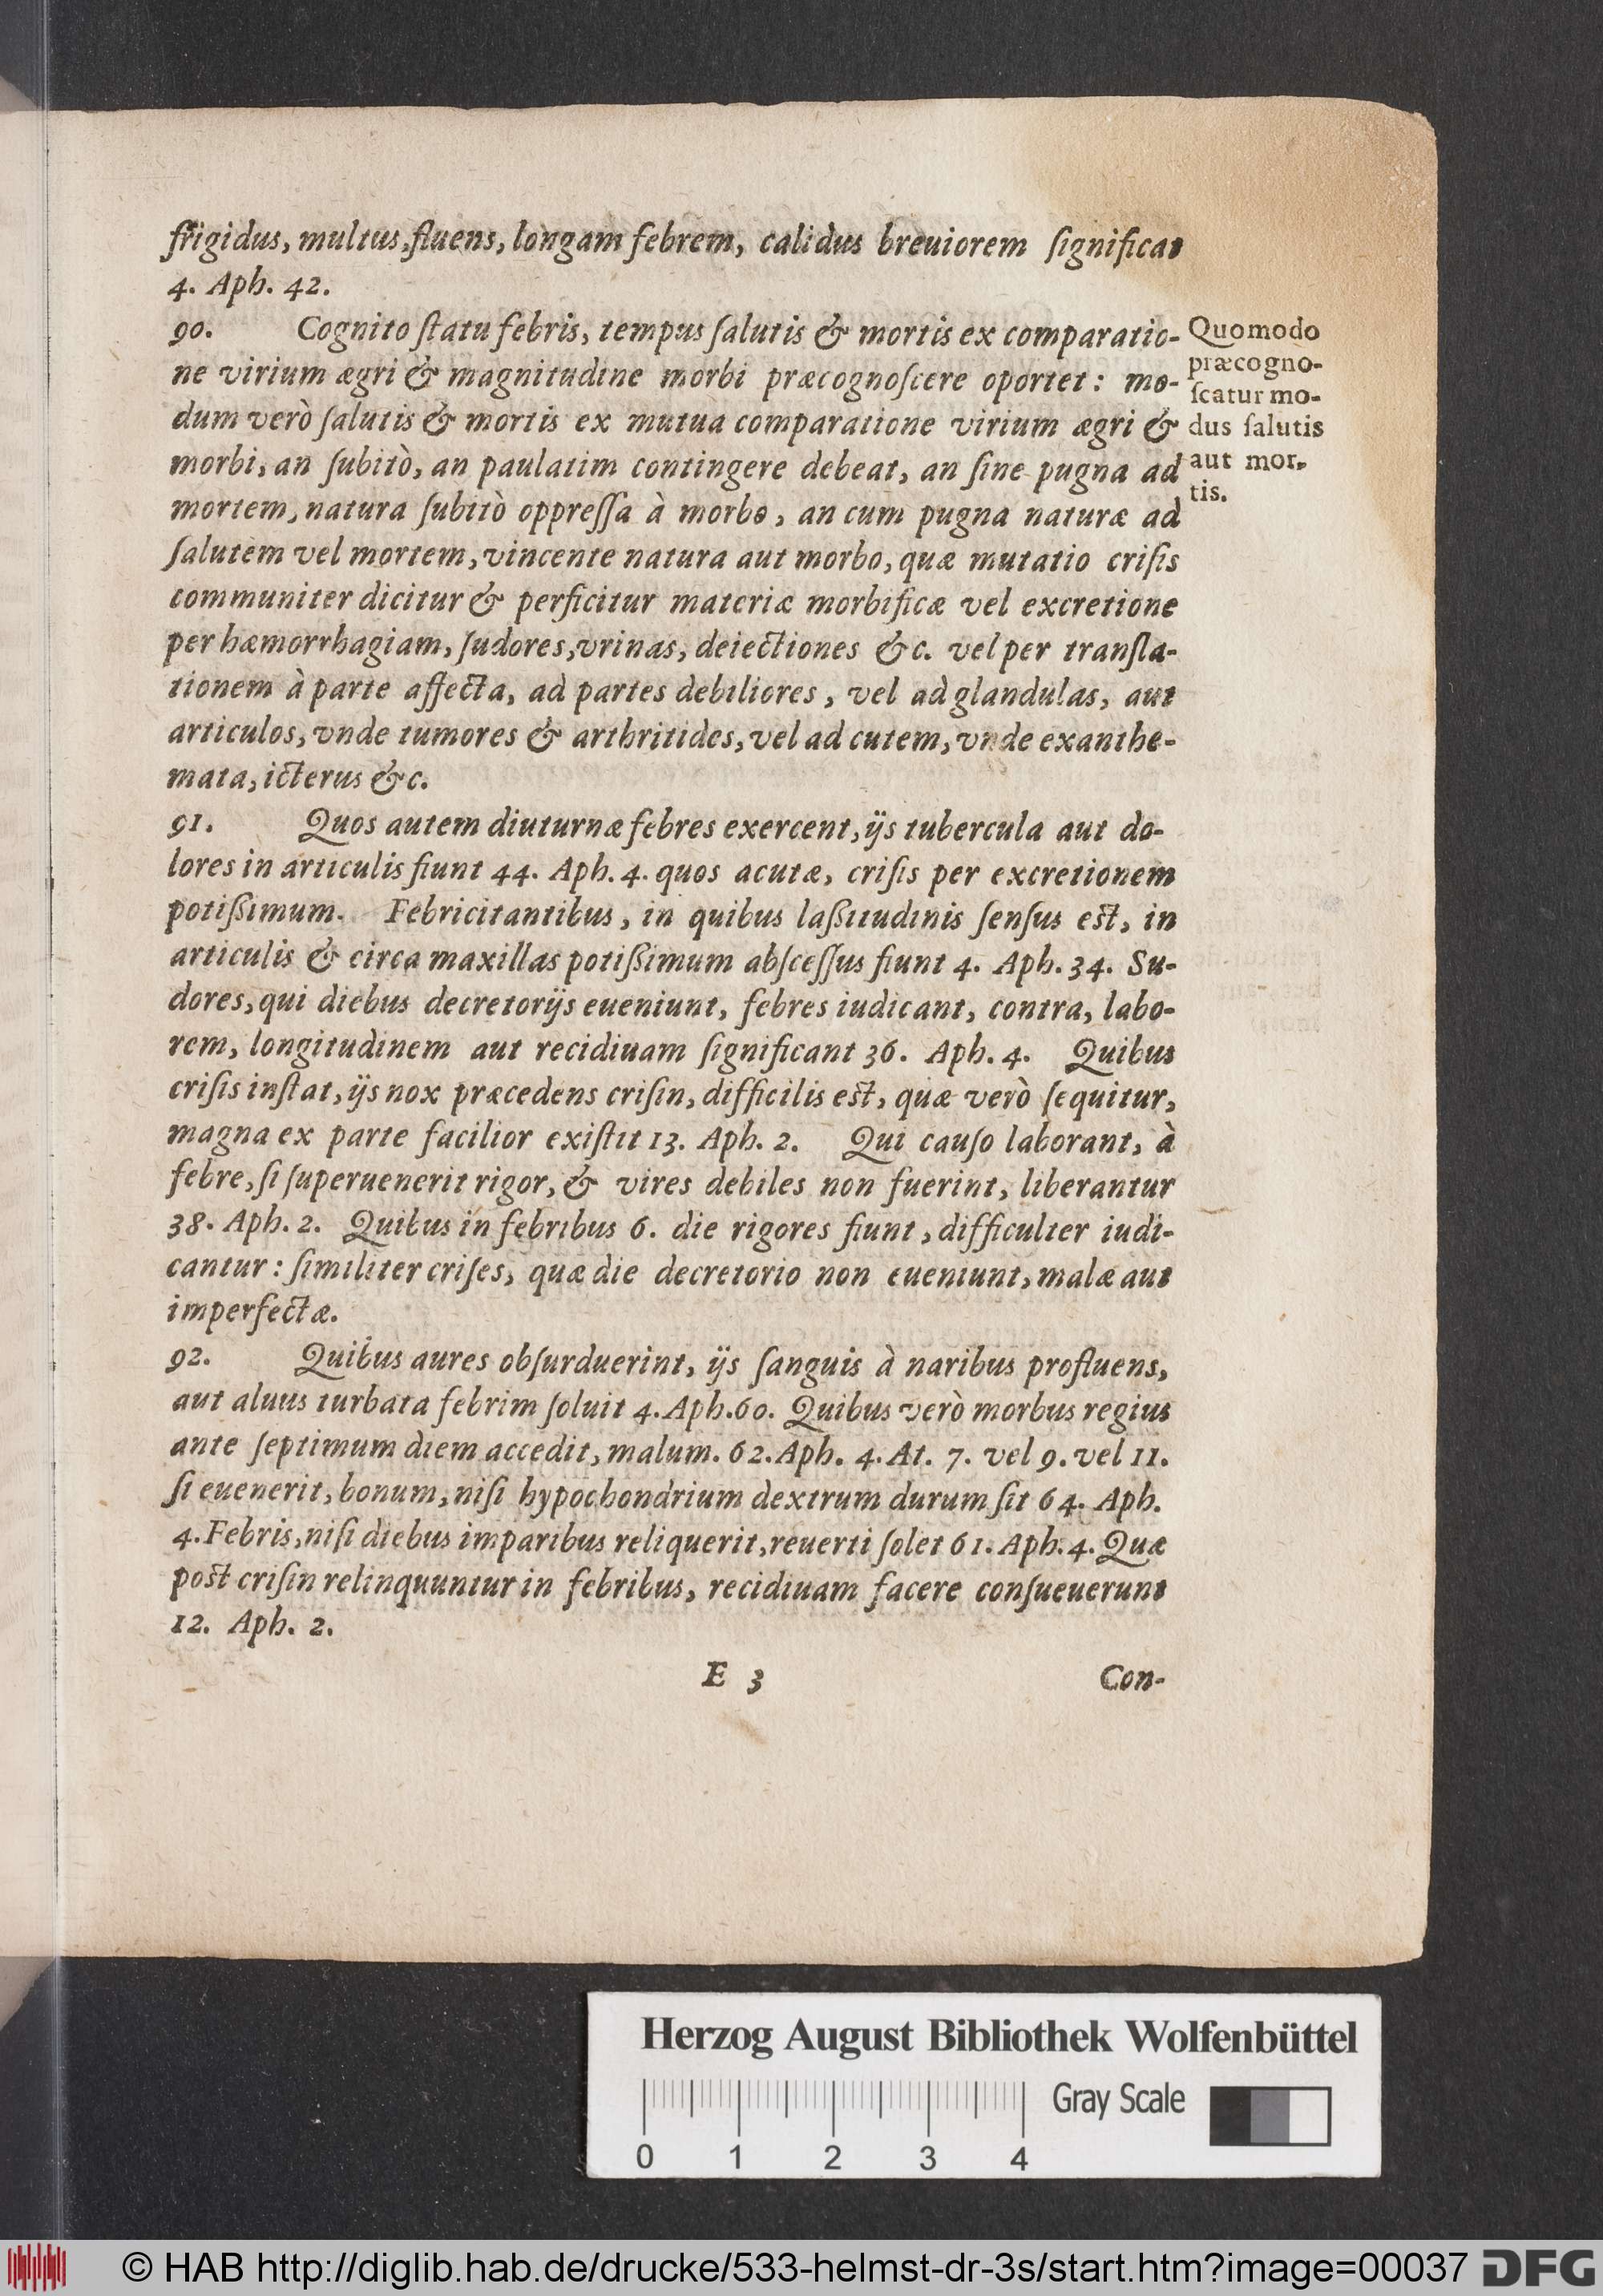 frigidus, multus, fluens, longam febrem, calidus breuiorem ſignificat
4. Aph. 42.
90. Cognito ſtatu febris, tempus ſalutis & mortis ex comparatio-
ne virium ægri & magnitudine morbi præcognoſcere oportet: mo-
dum verò ſalutis & mortis ex mutua comparatione virium ægri &
morbi, an ſubitò, an paulatim contingere debeat, an ſine pugna ad
mortem, natura ſubitò oppreſſa à morbo, an cum pugna naturæ ad
ſalutem vel mortem, vincente natura aut morbo, quæ mutatio criſis
communiter dicitur & perficitur materiæ morbificæ vel excretione
per hæmorrhagiam, ſudores, vrinas, deiectiones &c. vel per transla-
tionem à parte affecta, ad partes debiliores, vel ad glandulas, aut
articulos, vnde tumores & arthritides, vel ad cutem, vnde exanthe-
mata, icterus &c.
Quomodo
præcogno-
ſcatur mo-
dus ſalutis
aut mor-
tis.
91. Quos autem diuturnæ febres exercent, ijs tubercula aut do-
lores in articulis fiunt 44. Aph. 4. quos acutæ, criſis per excretionem
potißimum. Febricitantibus, in quibus laßitudinis ſenſus est, in
articulis & circa maxillas potißimum abſceſſus fiunt 4. Aph. 34. Su-
dores, qui diebus decretorijs eueniunt, febres iudicant, contra, labo-
rem, longitudinem aut recidiuam ſignificant 36. Aph. 4. Quibus
criſis inſtat, ijs nox præcedens criſin, difficilis est, quæ verò ſequitur,
magna ex parte facilior exiſtit 13. Aph. 2. Qui cauſo laborant, à
febre, ſi ſuperuenerit rigor, & vires debiles non fuerint, liberantur
38. Aph. 2. Quibus in febribus 6. die rigores fiunt, difficulter iudi-
cantur: ſimiliter criſes, quæ die decretorio non eueniunt, malæ aut
imperfectæ.
92. Quibus aures obſurduerint, ijs ſanguis à naribus profluens,
aut aluus turbata febrim ſoluit 4. Aph. 60. Quibus verò morbus regius
ante ſeptimum diem accedit, malum. 62. Aph. 4. At. 7. vel 9. vel 11.
ſi euenerit, bonum, niſi hypochondrium dextrum durum ſit 64. Aph.
4. Febris, niſi diebus imparibus reliquerit, reuerti ſolet 61. Aph. 4. Quæ
post criſin relinquuntur in febribus, recidiuam facere conſueuerunt
12. Aph. 2.
E 3
Con-
Herzog August Bibliothek Wolfenbüttel
Gray Scale
0 1 2 3 4
© HAB http://diglib.hab.de/drucke/533-helmst-dr-3s/start.htm?image=00037
DFG